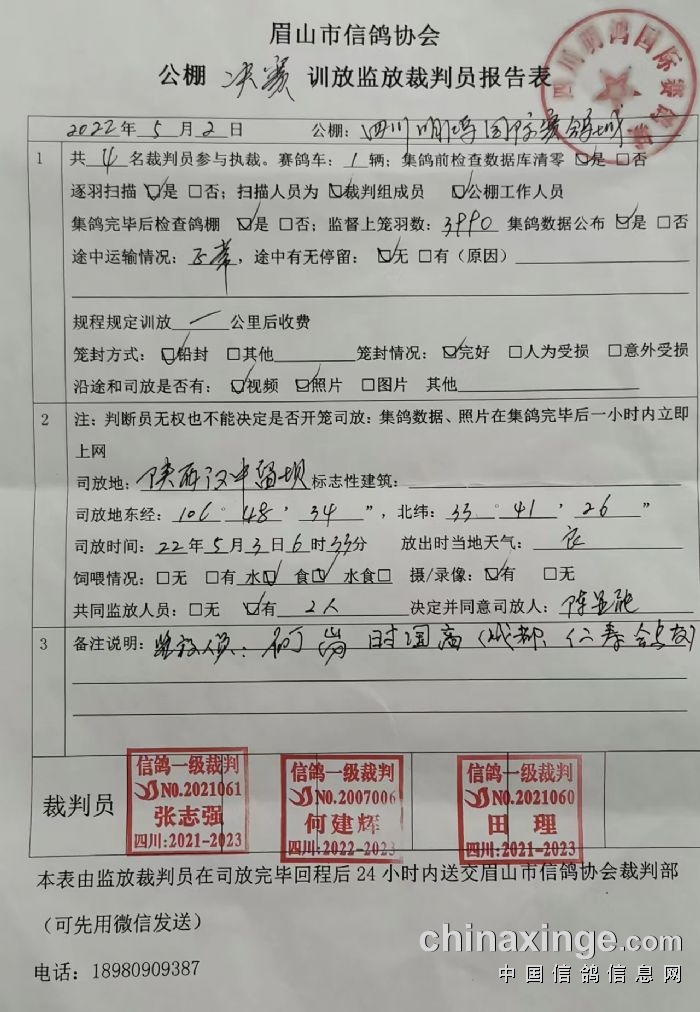 眉山市信鸽协会
公棚 决赛 训放监放裁判员报告表
四川明鸿国际赛鸽城
2022年5月2日 公棚：四川明鸿国际赛鸽城
1 共 4 名裁判员参与执裁。赛鸽车：1 辆；集鸽前检查数据库清零 ☑是 □否
逐羽扫描 ☑是 □否；扫描人员为 ☑裁判组成员 ☑公棚工作人员
集鸽完毕后检查鸽棚 ☑是 □否；监督上笼羽数：3990 集鸽数据公布 ☑是 □否
途中运输情况：正常，途中有无停留：☑无 □有（原因）
规程规定训放 / 公里后收费
笼封方式：☑铅封 □其他 笼封情况：☑完好 □人为受损 □意外受损
沿途和司放是否有：☑视频 ☑照片 □图片 其他
2 注：判断员无权也不能决定是否开笼司放：集鸽数据、照片在集鸽完毕后一小时内立即
上网
司放地：陕西汉中留坝 标志性建筑：
司放地东经：106°48′34″，北纬：33°41′26″
司放时间：22年5月3日6时33分 放出时当地天气：良
饲喂情况：□无 □有 水☑ 食☑ 水食□ 摄/录像：☑有 □无
共同监放人员：□无 ☑有 2人 决定并同意司放人：陈
3 备注说明：监放人员：何岗 时国高（成都、仁寿鸽友）
裁判员
信鸽一级裁判
NO.2021061
张志强
四川:2021-2023
信鸽一级裁判
NO.2007006
何建辉
四川:2022-2023
信鸽一级裁判
NO.2021060
田 理
四川:2021-2023
本表由监放裁判员在司放完毕回程后24小时内送交眉山市信鸽协会裁判部
（可先用微信发送）
电话：18980909387
chinaxinge.com
中国信鸽信息网